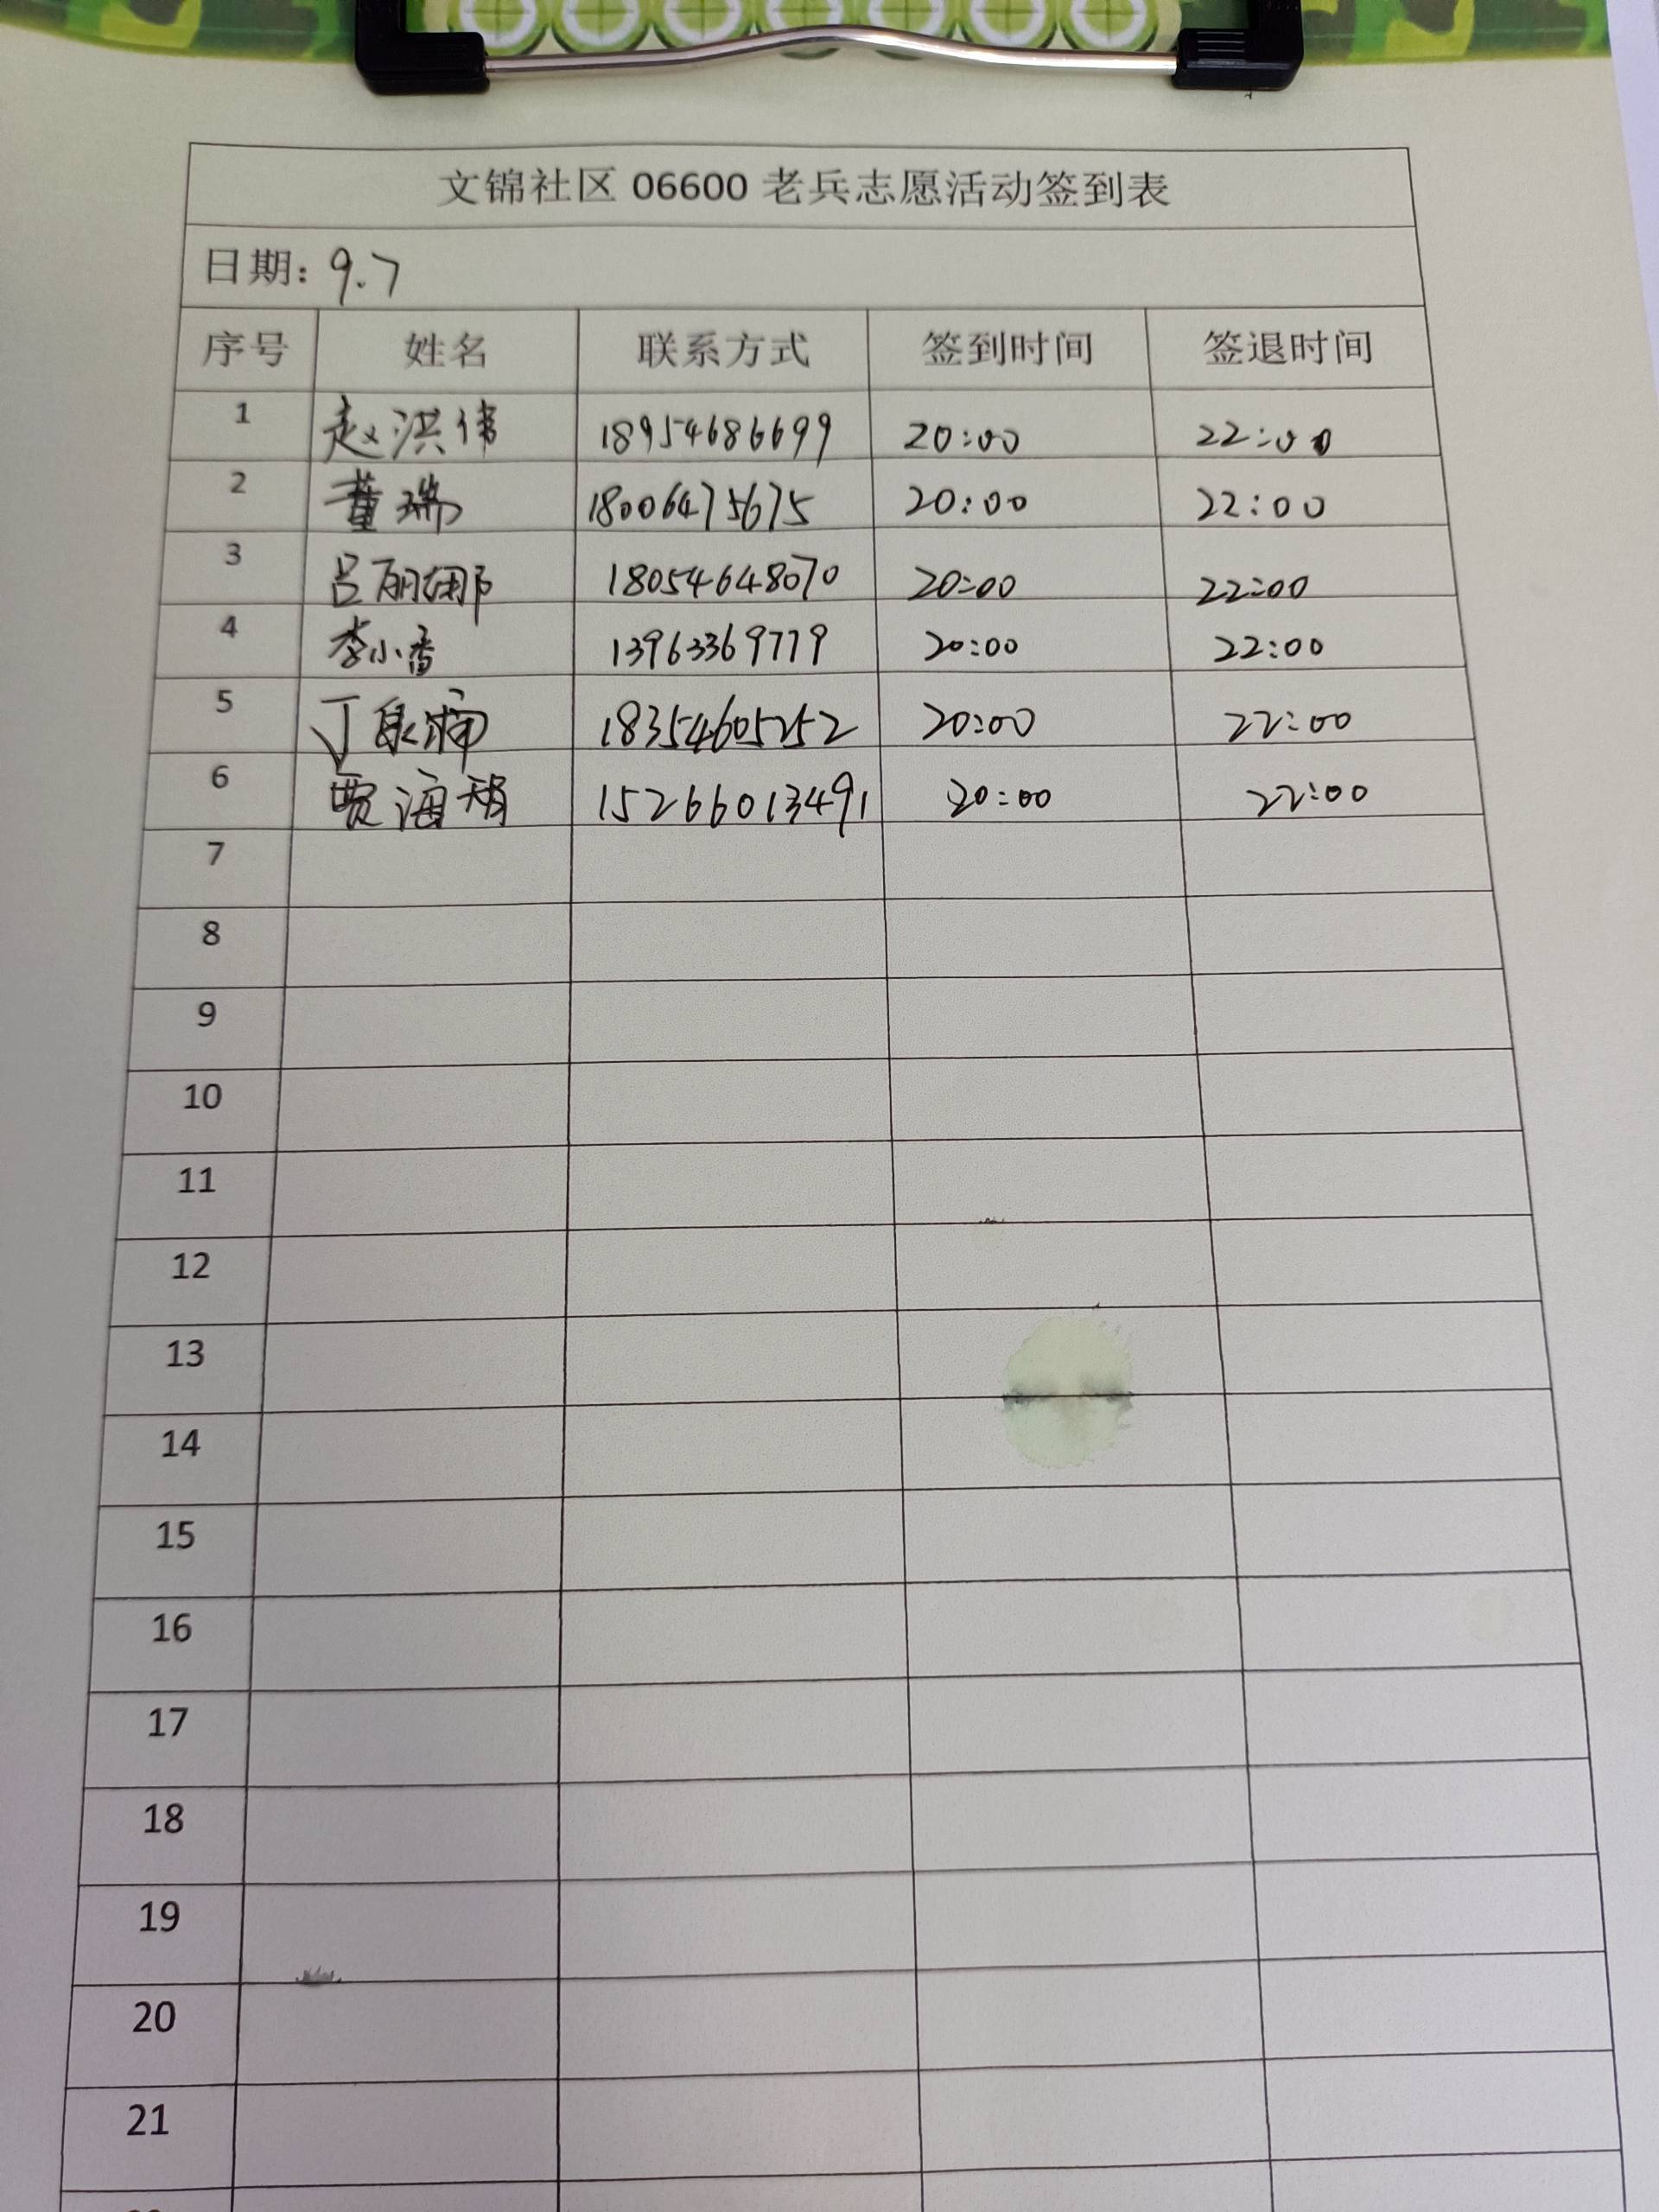 文锦社区 06600 老兵志愿活动签到表
日期: 9.7
序号 姓名 联系方式 签到时间 签退时间
1 赵洪伟 18954686699 20:00 22:00
2 董瑞 18006475675 20:00 22:00
3 吕丽娜 18054648070 20:00 22:00
4 李小香 13963369779 20:00 22:00
5 丁 18354605252 20:00 22:00
6 贾海 15266013491 20:00 22:00
7
8
9
10
11
12
13
14
15
16
17
18
19
20
21